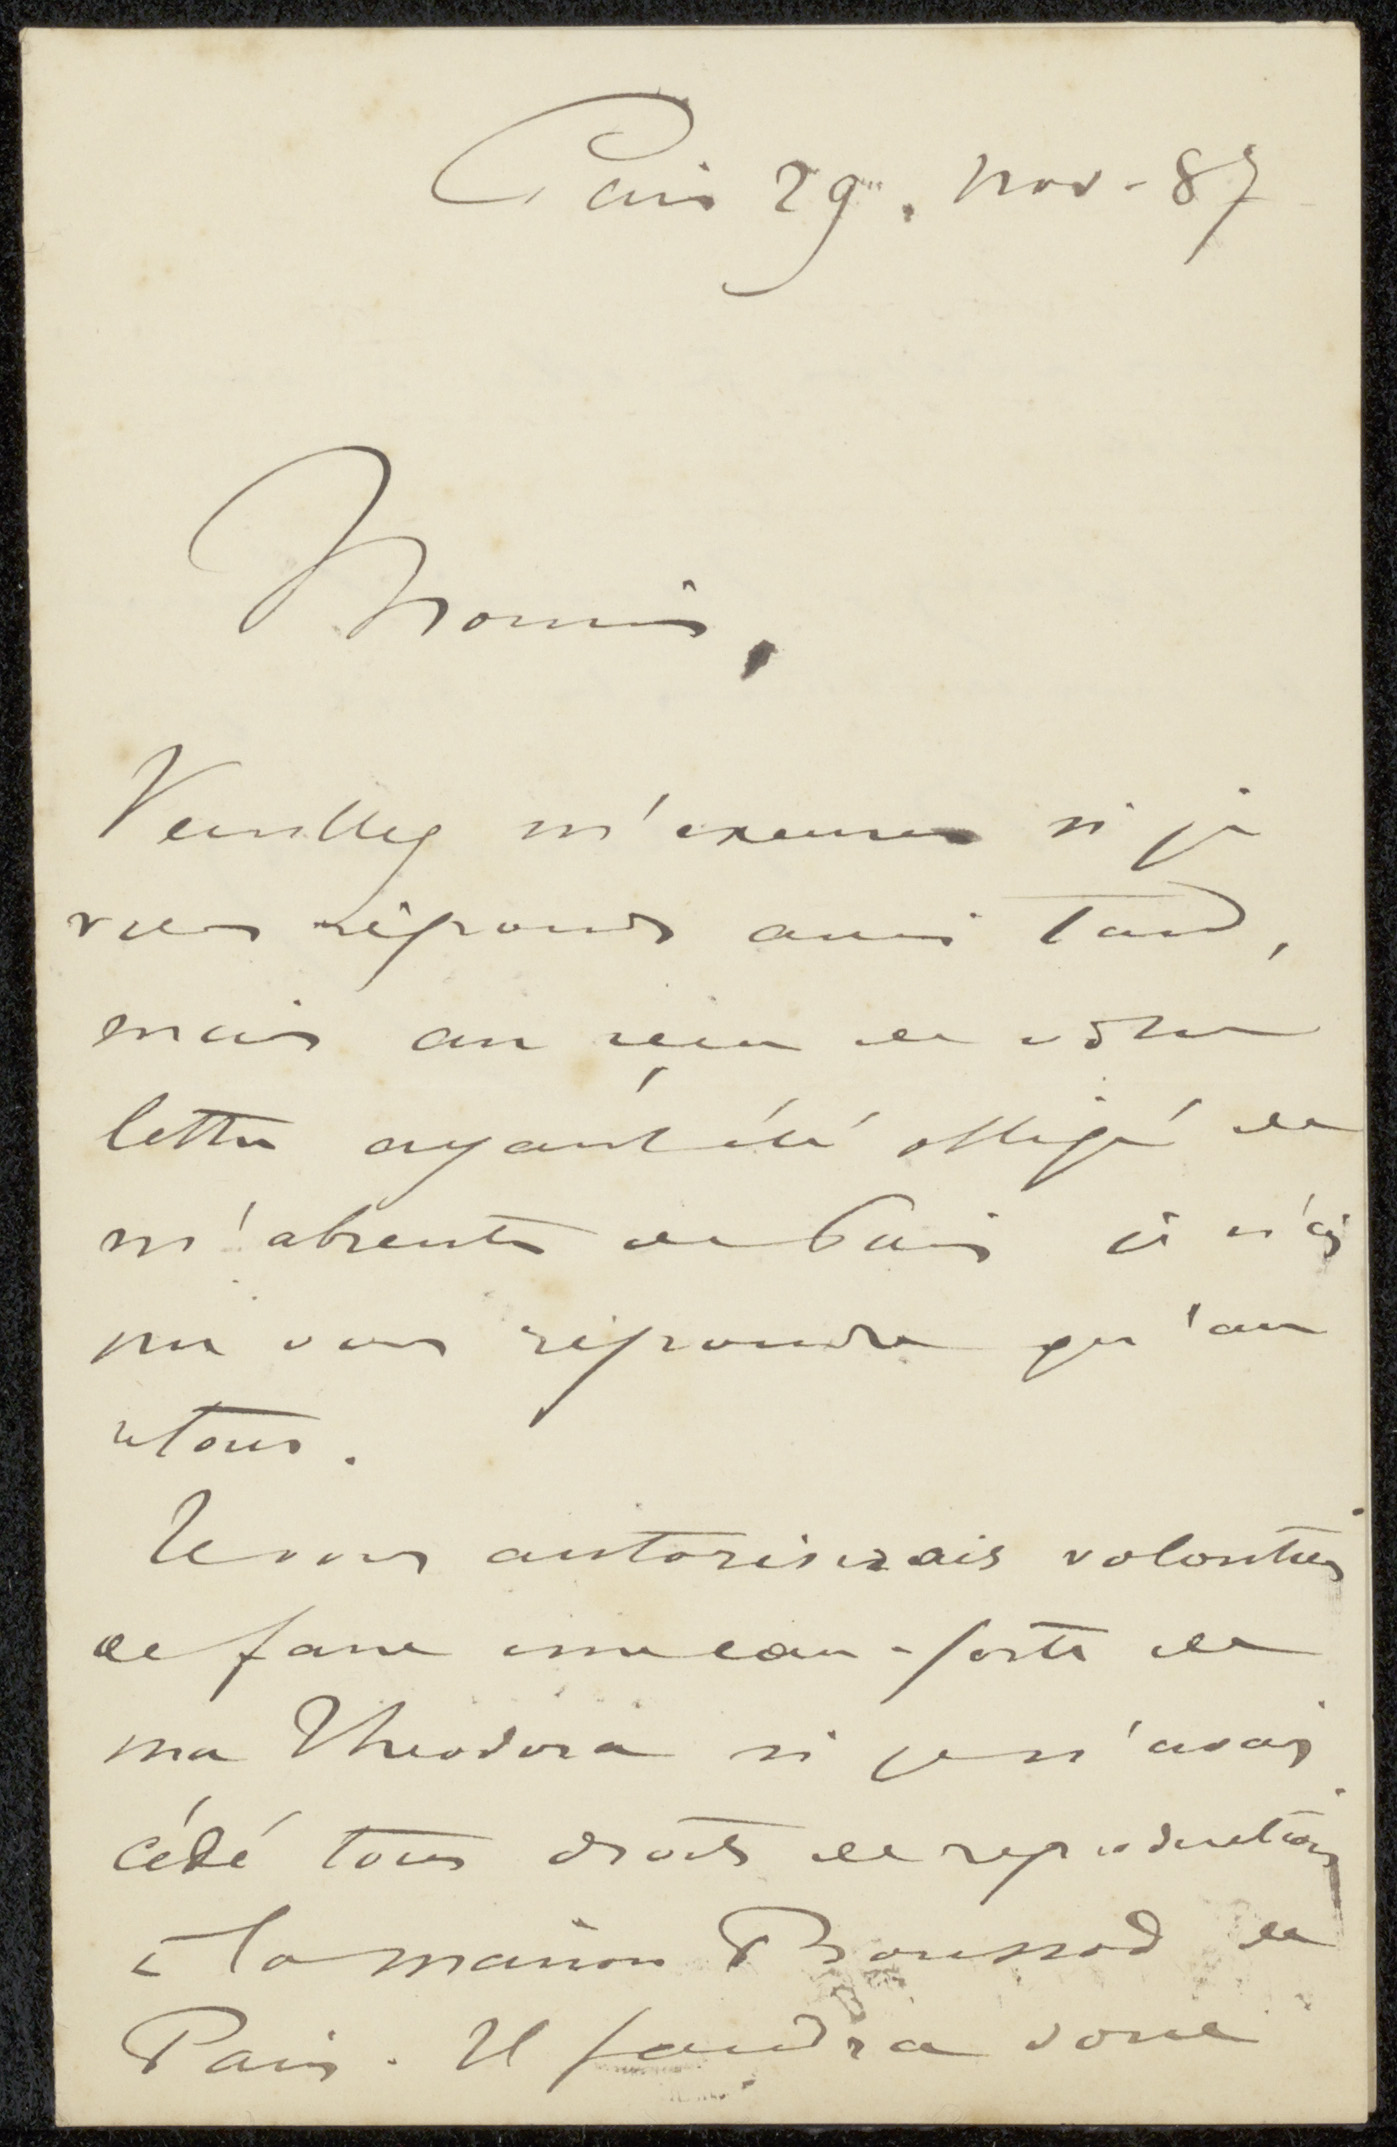 Paris 29. nov. 87
Monsieur,
Veuillez m'excuser si je
vous réponds aussi tard,
mais au reçu de votre
lettre ayant été obligé de
m'absenter de Paris je n'ai
pu vous répondre qu'au
retour.
Je vous autoriserais volontiers
de faire une eau-forte de
ma Theodora si je n'avais
cédé tous droits de reproduction
à la maison Boussod de
Paris. Il faudra donc